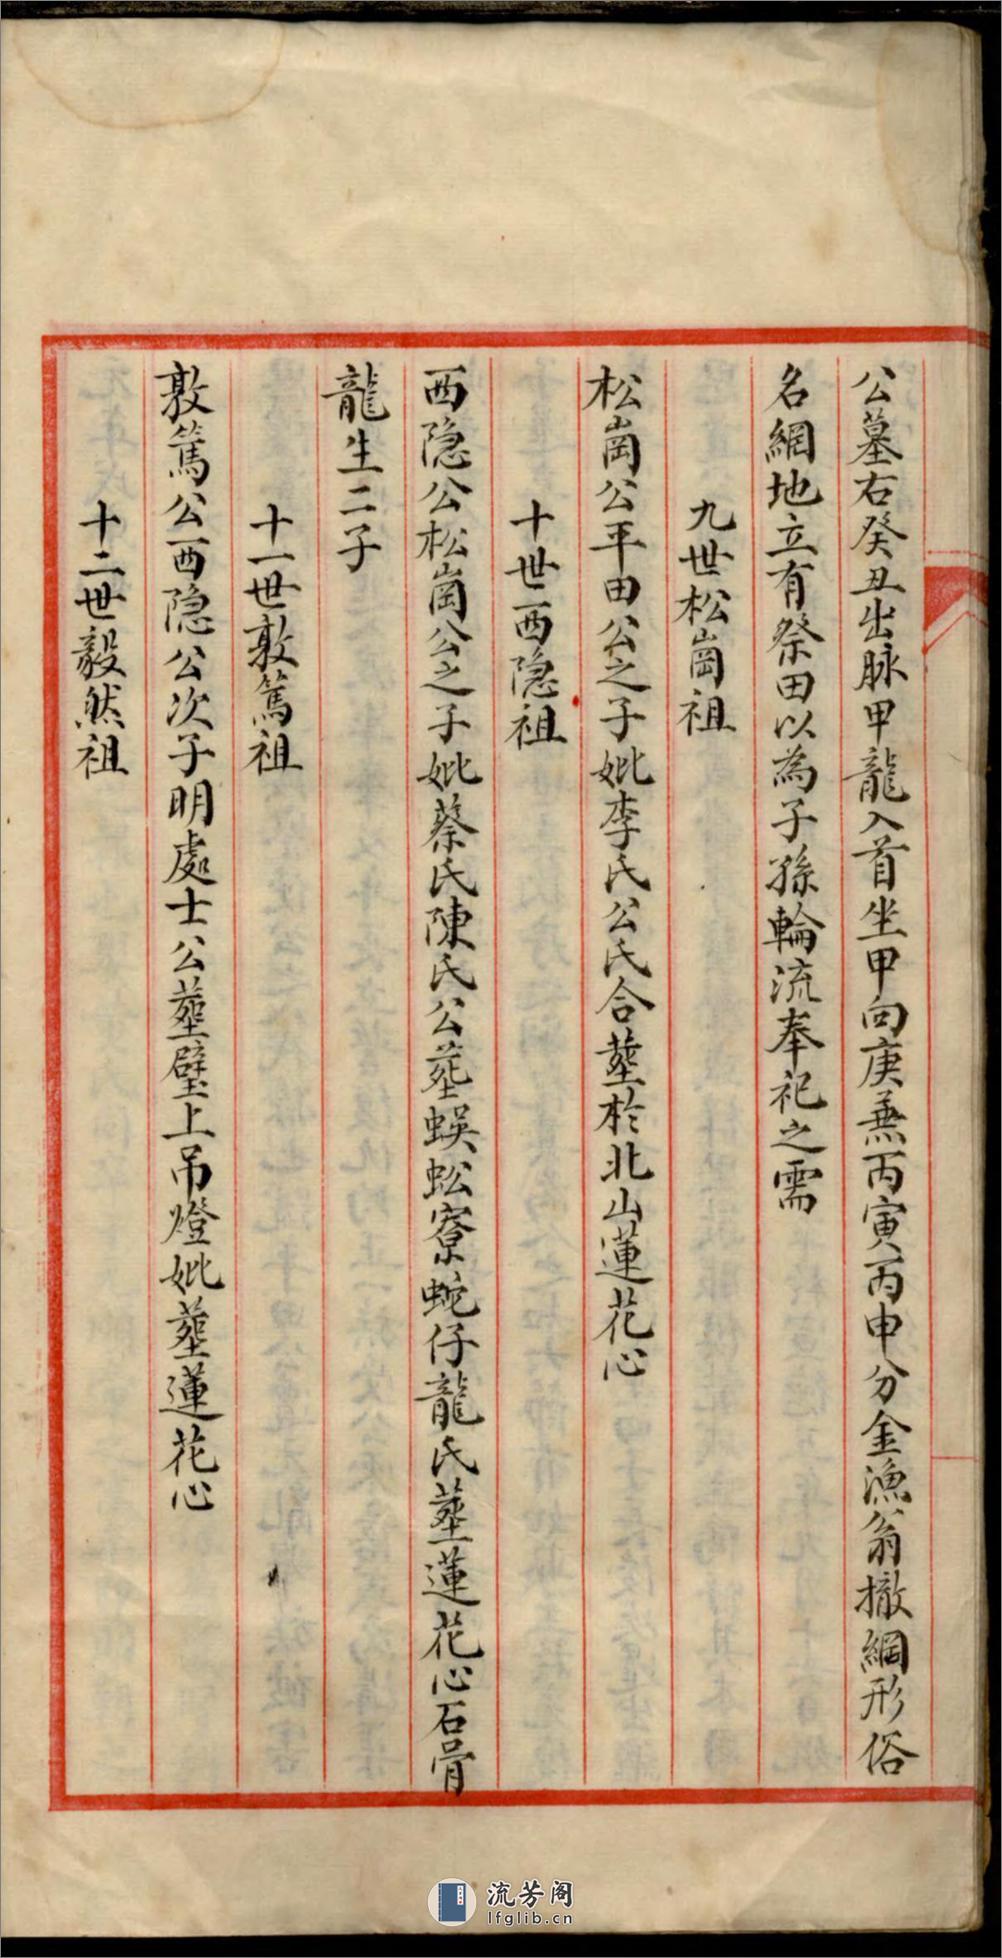 公墓右癸丑出脉甲龍入首坐甲向庚兼丙寅丙申分金漁翁撤網形俗
名網地立有祭田以為子孫輪流奉祀之需
九世松崗祖
松崗公平田公之子妣李氏公氏合塟於北山蓮花心
十世西隐祖
西隐公松崗公之子妣蔡氏陳氏公塟蜈蚣寮蛇仔龍氏塟蓮花心石骨
龍生二子
十一世敦篤祖
敦篤公西隐公次子明處士公塟壁上吊燈妣塟蓮花心
十二世毅然祖
流芳阁
lfglib.cn